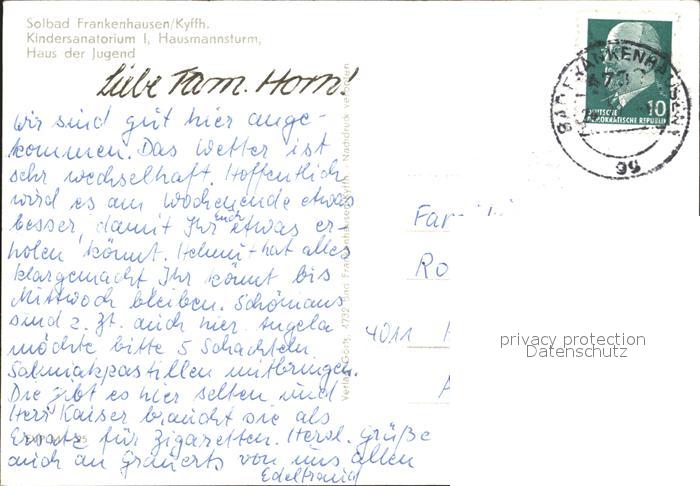 Solbad Frankenhausen/Kyffh.
Kindersanatorium I, Hausmannsturm,
Haus der Jugend
Liebe Fam. Horn!
Wir sind gut hier ange-
kommen. Das Wetter ist
sehr wechselhaft. Hoffentlich
wird es am Wochenende etwas
besser, damit Ihr Euch etwas er-
holen könnt. Helmut hat alles
klargemacht Ihr könnt bis
Mittwoch bleiben. Schömanns
sind z. Zt. auch hier. Angela
möchte bitte 5 Schachteln
Salmiakpastillen mitbringen.
Die gibt es hier selten und
Herr Kaiser braucht sie als
Ersatz für Zigaretten. Herzl. Grüße
auch an Grauerts von uns allen
Edeltraud
Verlag Goritz, 1732 Bad Frankenhausen/Kyffh. - Nachdruck verboten
BAD FRANKENHAUSEN
99
10
DEUTSCHE
DEMOKRATISCHE REPUBLIK
Fam
Ro
4011
privacy protection
Datenschutz